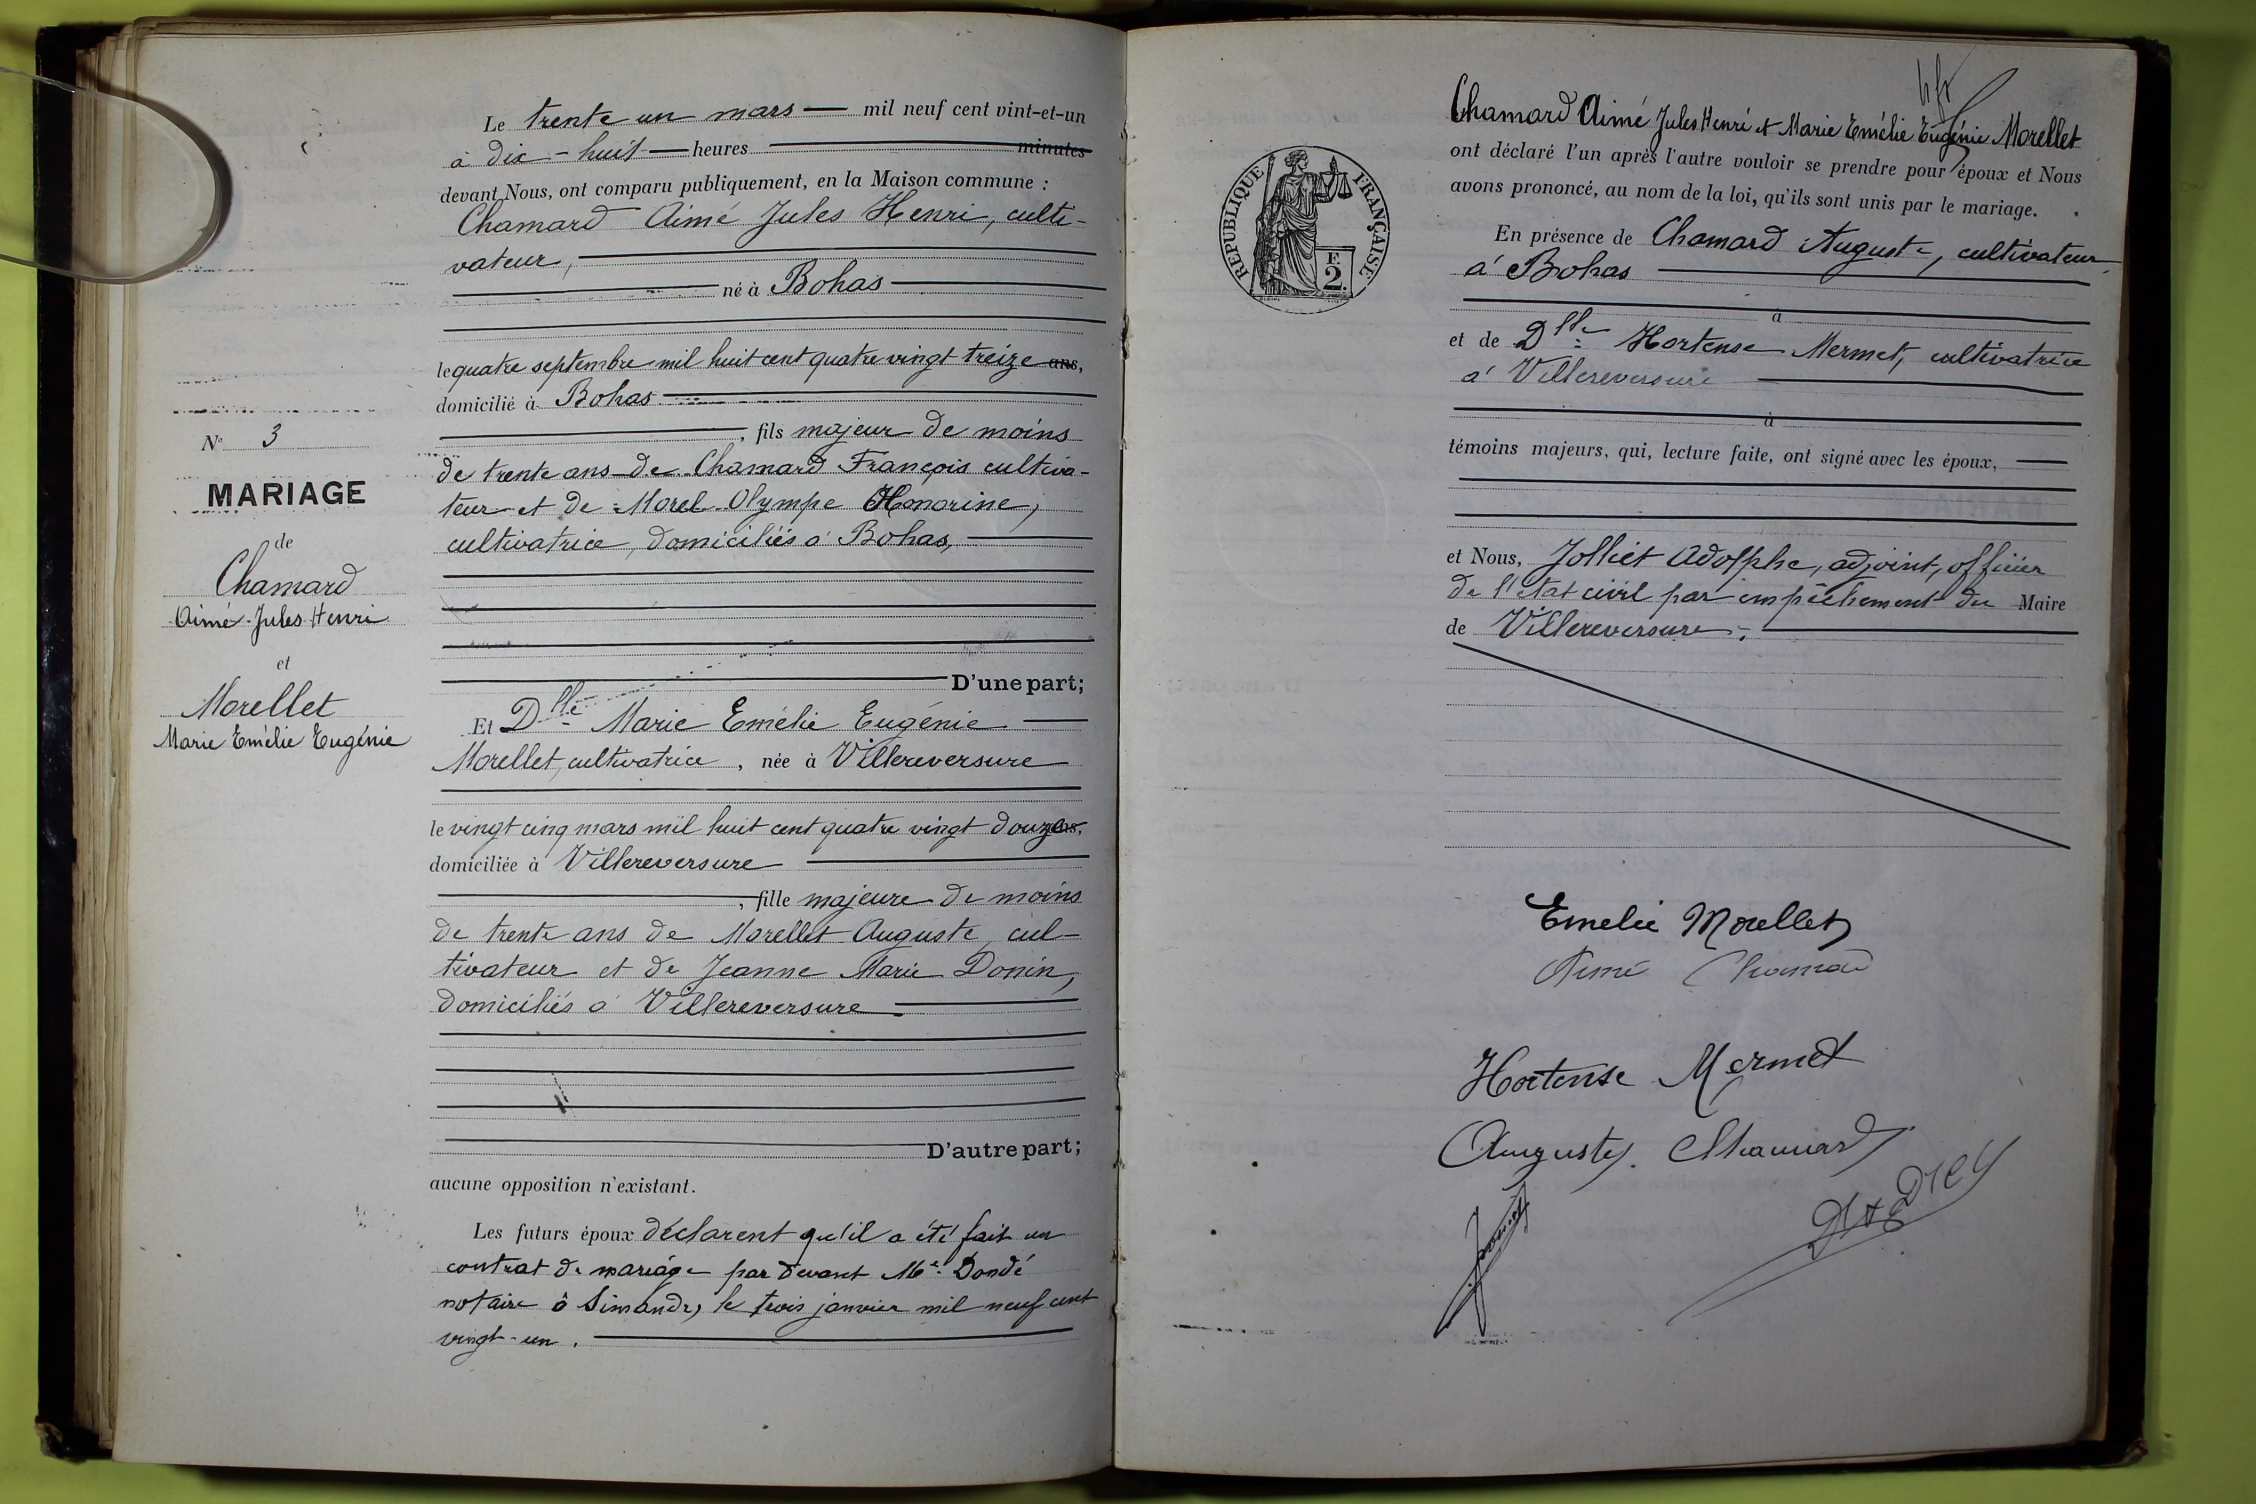 Le trente un mars mil neuf cent vint-et-un
à dix-huit heures minutes
devant Nous, ont comparu publiquement, en la Maison commune :
Chamard Aimé Jules Henri, culti-
vateur,
né à Bohas
le quatre septembre mil huit cent quatre vingt treize ans,
domicilié à Bohas
, fils majeur de moins
de trente ans de Chamard François cultiva-
teur et de Morel Olympe Honorine,
cultivatrice, domiciliés à Bohas,
D'une part;
Et Dlle Marie Emélie Eugénie
Morellet, cultivatrice, née à Villereversure
le vingt cinq mars mil huit cent quatre vingt douze ans,
domiciliée à Villereversure
, fille majeure de moins
de trente ans de Morellet Auguste, cul-
tivateur et de Jeanne Marie Donin,
domiciliés à Villereversure.
D'autre part;
aucune opposition n'existant.
Les futurs époux déclarent qu'il a été fait un
contrat de mariage par devant Me Dondé
notaire à Simandre, le trois janvier mil neuf cent
vingt-un.
No 3
MARIAGE
de
Chamard
Aimé Jules Henri
et
Morellet
Marie Emélie Eugénie
RÉPUBLIQUE FRANÇAISE
F.
2.
Chamard Aimé Jules Henri et Marie Emélie Eugénie Morellet
ont déclaré l'un après l'autre vouloir se prendre pour époux et Nous
avons prononcé, au nom de la loi, qu'ils sont unis par le mariage.
En présence de Chamard Auguste, cultivateur,
à Bohas
à
et de Dlle Hortense Mermet, cultivatrice
à Villereversure
à
témoins majeurs, qui, lecture faite, ont signé avec les époux,
et Nous, Jolliet Adolphe, adjoint, officier
de l'etat civil par empêchement du Maire
de Villereversure.
Emelie Morellet
Aimé Chamard
Hortense Mermet
Auguste Chamard